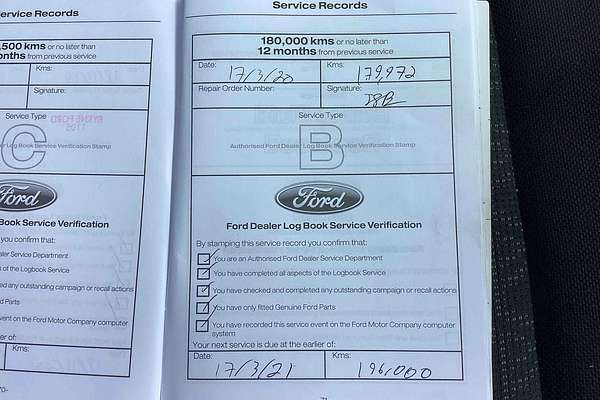 Service Records
,500 kms or no later than
onths from previous service
Kms:
Signature:
Service Type
C
er Log Book Service Verification Stamp
Ford
Book Service Verification
you confirm that:
aler Service Department
s of the Logbook Service
ed any outstanding campaign or recall actions
Parts
event on the Ford Motor Company computer
er of:
Kms:
70-
Service Records
180,000 kms or no later than
12 months from previous service
Date: 17/3/20 Kms: 179,972
Repair Order Number: Signature:
Service Type
B
Authorised Ford Dealer Log Book Service Verification Stamp
Ford
Ford Dealer Log Book Service Verification
By stamping this service record you confirm that:
You are an Authorised Ford Dealer Service Department
You have completed all aspects of the Logbook Service
You have checked and completed any outstanding campaign or recall actions
You have only fitted Genuine Ford Parts
You have recorded this service event on the Ford Motor Company computer
system
Your next service is due at the earlier of:
Date: 17/3/21 Kms: 196,000